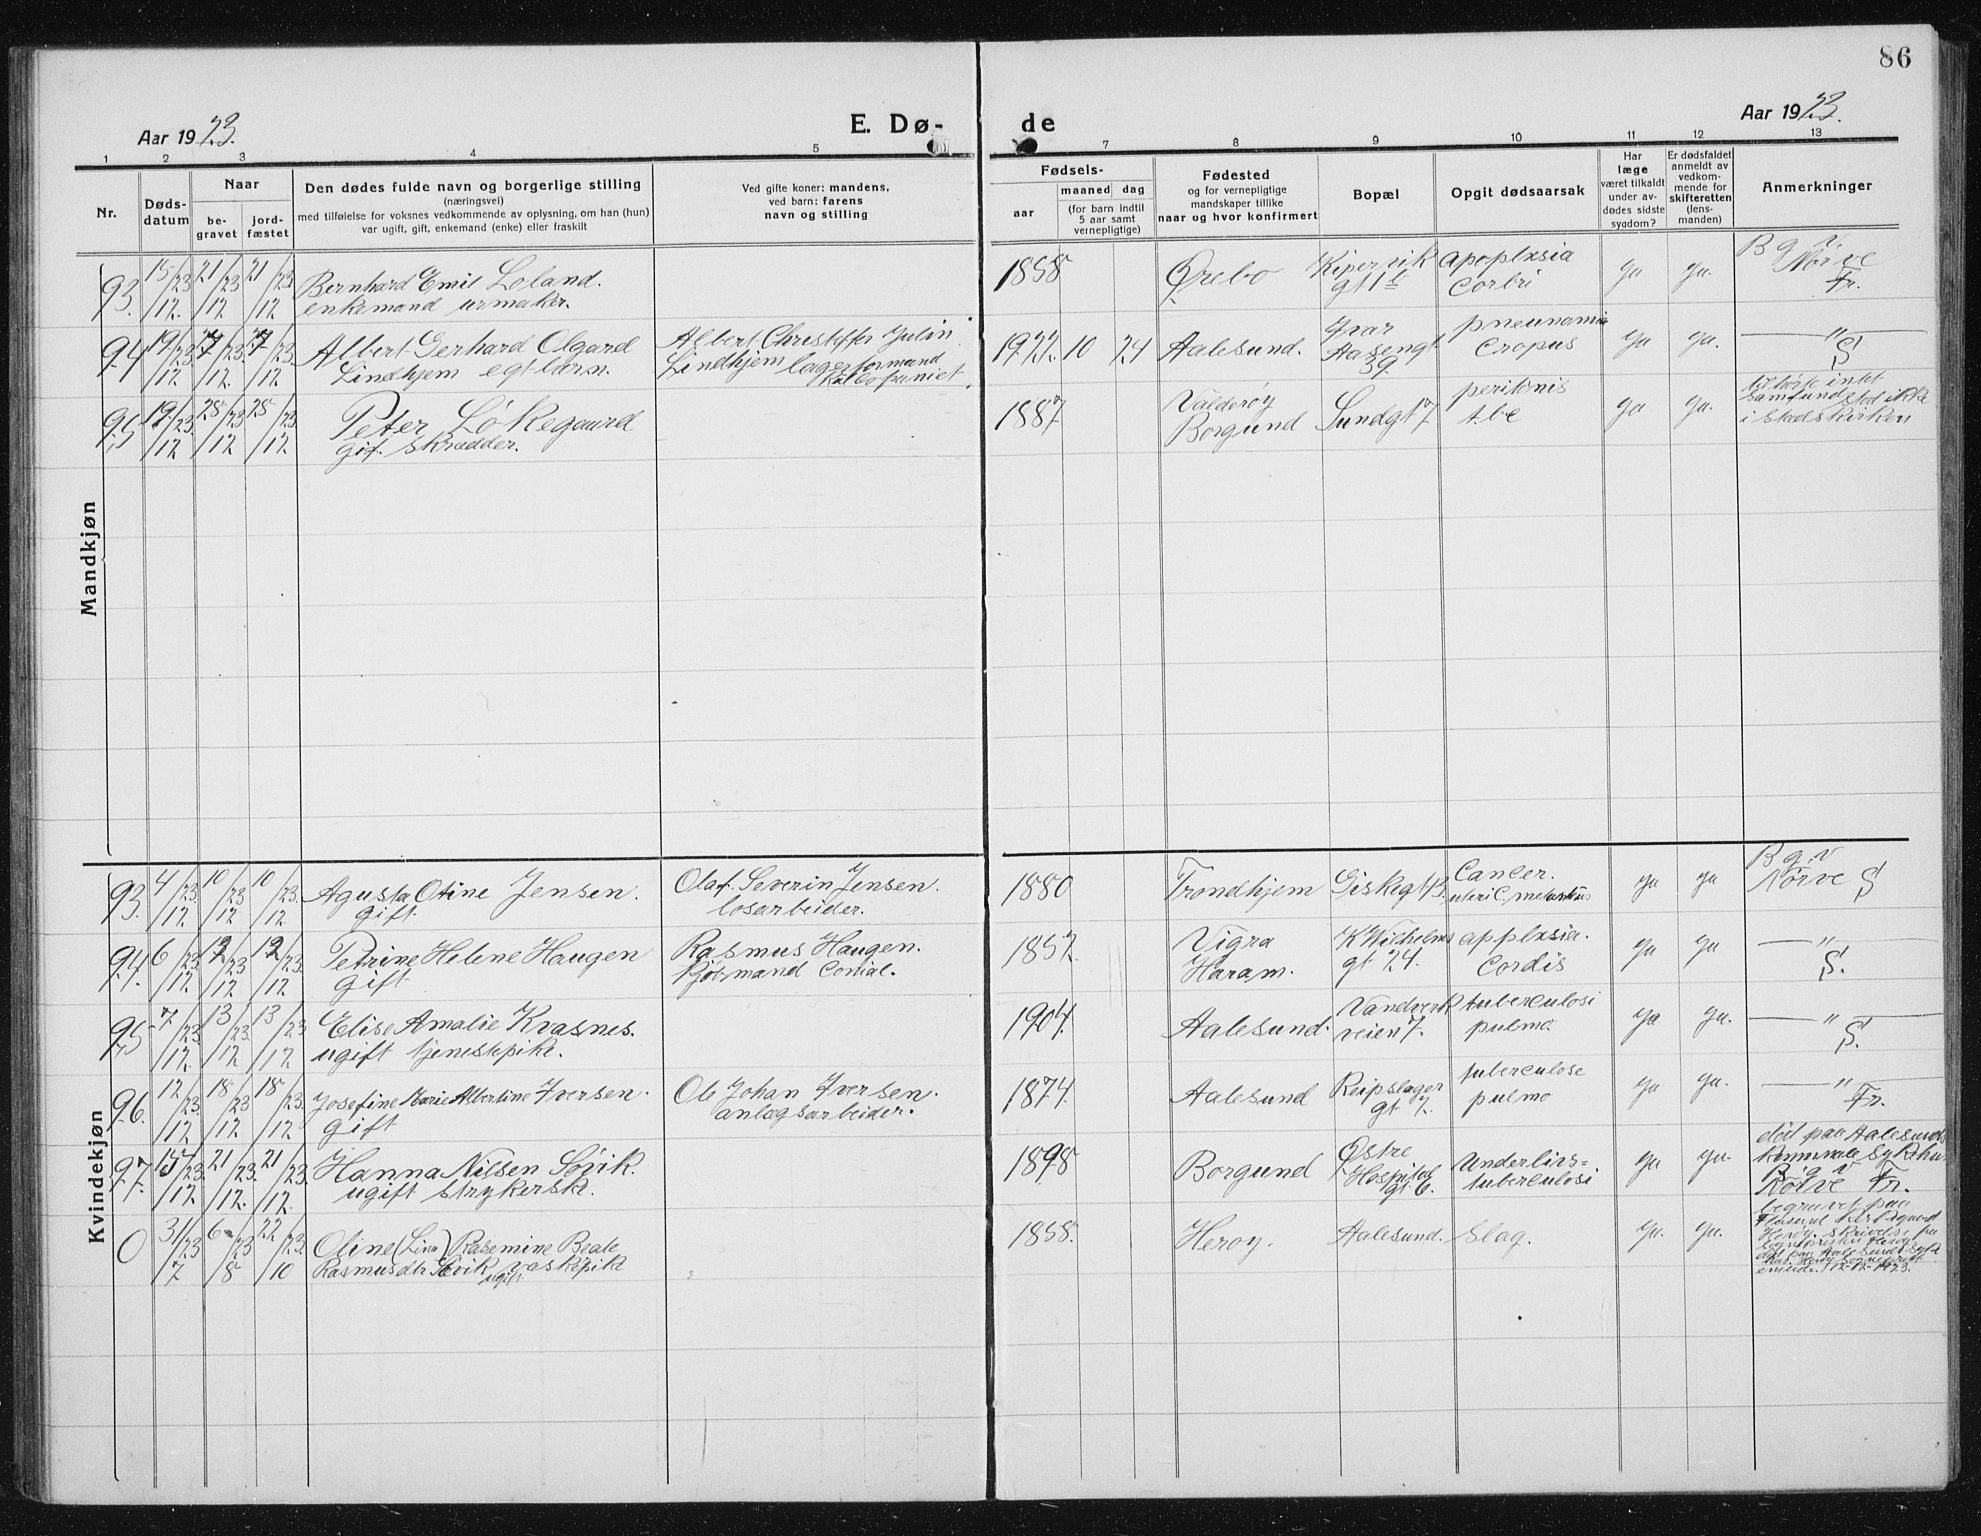 86
Aar 1923.
E. Dø-
de
Aar 1923.
1 2 3 4 5 7 8 9 10 11 12 13
Nr.
Døds-
datum
Naar
be-
gravet
jord-
fæstet
Den dødes fulde navn og borgerlige stilling
(næringsvei)
med tilføielse for voksnes vedkommende av oplysning, om han (hun)
var ugift, gift, enkemand (enke) eller fraskilt
Ved gifte koner: mandens,
ved barn: farens
navn og stilling
Fødsels-
aar
maaned dag
(for barn indtil
5 aar samt
vernepligtige)
Fødested
og for vernepligtige
mandskaper tillike
naar og hvor konfirmert
Bopæl
Opgit dødsaarsak
Har
læge
været tilkaldt
under av-
dødes sidste
sygdom?
Er dødsfaldet
anmeldt av
vedkom-
mende for
skifteretten
(lens-
manden)
Anmerkninger
Mandkjøn
93. 15/12 23 21/12 23 21/12 23
Bernhard Emil Loland.
enkemand urmaker.
1858
Ørebo
Kipervik
gt 1b
apoplxsia
Corbri
ja ja.
B g v.
Nørve
Fr.
94 19/12 23
Albert Gerhard Olgard
Lindhjem egt barn.
Albert Christoffer Julin
Lindhjem lagerformand
1922 10 24
Aalesund.
Ivar
Aasengt
39
pneunamia
Cropus
ja ja.
— " —
S
95 19/12 23. 28/12 23 28/12 23.
Peter Løkegaard
gif. skrædder.
1887
Valderøy
Borgund
Sundgt 7
peritonis
t.b.c
ja ja.
tilhørte intet
samfund stod ikke
i Statskirken
Kvindekjøn
93. 4/12 23 10/12 23 10/12 23.
Agusta Otine Jensen.
Gift.
Olaf. Severin Jensen.
losarbeider.
1880
Trondhjem
Giskegt 13.
Cancer.
uteri C,
ja ja
B g v
Nørve S
94. 6/12 23. 12/12 23 12/12 23.
Petrine Helene Haugen
Gift
Rasmus Haugen.
kjøbmand
1852.
Vigra
Haram.
K Wilhelms
gt 24.
applxsia.
Cordis
ja ja
— " —
S.
95 7/12 23. 13/12 23. 13/12 23
Elise Amalie Kvasnes.
ugift tjenestepike.
1904.
Aalesund.
Vandverk
veien 7.
tuberculosi
pulmo.
ja ja.
— " —
S.
96. 12/12 23. 18/12 23 18/12 23.
Josefine Marie Albertine Iversen.
Gift
Ole Johan Iversen.
anlægsarbeider.
1874.
Aalesund
Reipslager
gt 7.
tuberculose
pulmo
ja ja.
— " —
Fr.
97. 15/12 23. 21/12 23. 21/12 23.
Hanna Nilsen Søvik.
ugift strykersk.
1898
Borgund
Østre
Hospital
gt 6.
Underlivs=
tuberculosi
ja ja.
død paa Aalesunds
kommunale Sykehus
B g v
Nørve Fr.
0 31/7 23 6/8 23 22/10 23.
Oline (Lina) Rasemine Beate
Rasmusdtr Søvik vaskepike
ugift
1858.
Herøy.
Aalesund.
Slag.
ja. ja.
begravet paa
død paa Aalesunds Syke
12-12-1923.